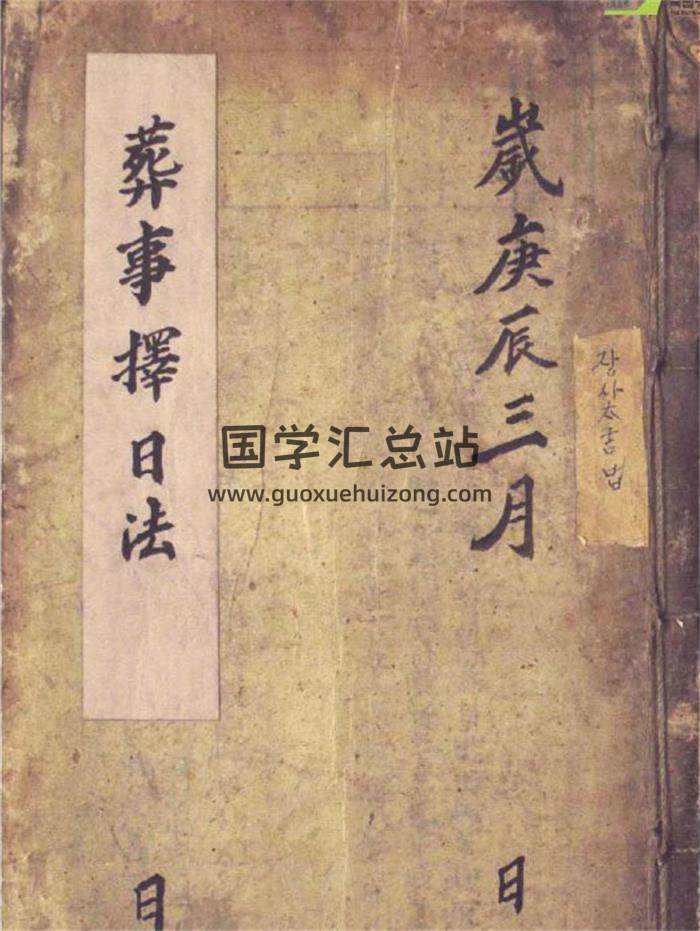 歲庚辰三月
日
葬事擇日法
日
国学汇总站
www.guoxuehuizong.com